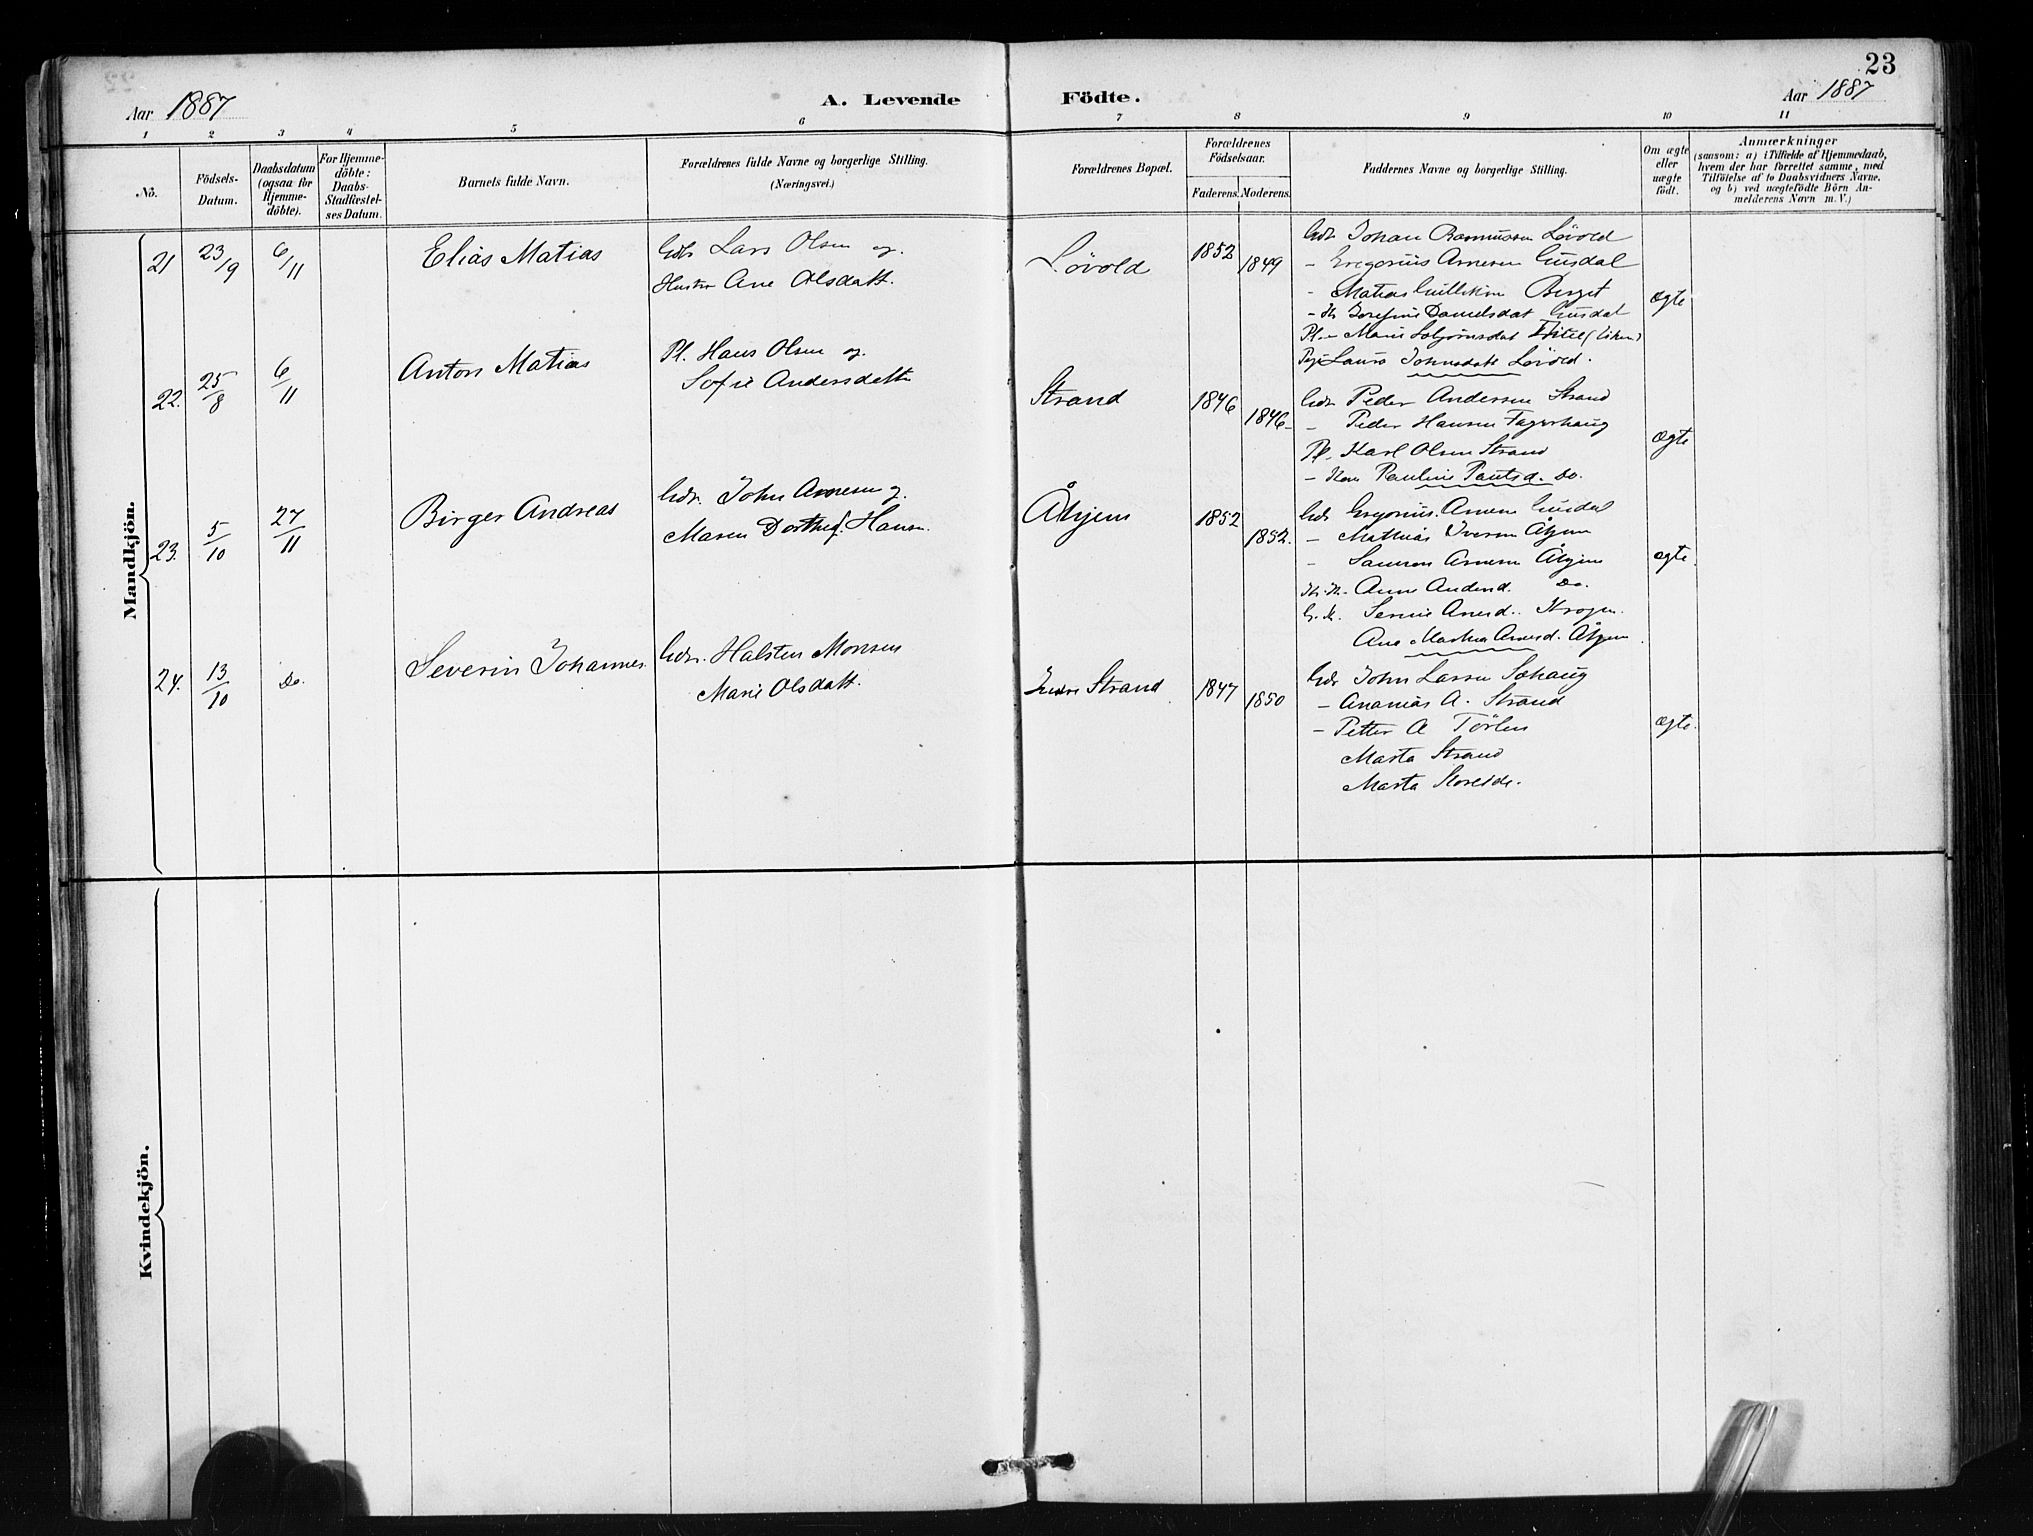 23
Aar 1887
A. Levende Födte.
Aar 1887
1 2 3 4 5 6 7 8 9 10 11
No.
Födsels-
Datum.
Daabsdatum
(ogsaa for
Hjemme-
döbte).
For Hjemme-
döbte:
Daabs-
Stadfæstel-
ses Datum.
Barnets fulde Navn.
Forældrenes fulde Navne og borgerlige Stilling.
(Næringsvei.)
Forældrenes Bopæl.
Forældrenes
Födselsaar.
Faderens.
Moderens.
Faddernes Navne og borgerlige Stilling.
Om ægte
eller
uægte
født.
Anmærkninger
(saasom: a) i Tilfælde af Hjemmedaab,
hvem der har forrettet samme, med
Tilföielse af to Daabsvidners Navne,
og b) ved uægtefödte Börn An-
melderens Navn m. V.)
Mandkjön.
21
23/9
6/11
Elias Matias
Gdr Lars Olsen og
Hustru Ane Olsdatt.
Lövold
1852
1849
Gdr Johan Rasmussen Lövold
- Gregorius Arnesen Gusdal
- Matias Gulliksen Berget
- K Josefine Danielsdat Gusdal
Pl. - Marie
Laura Johnsdatt Lövold.
ægte
22.
25/8
6/11
Anton Matias
Pl. Hans Olsen og.
Sofie Andersdatter
Strand
1846
1846-
Gdr Peder Andersen Strand
- Peder Hansen Fagerhaug
Pl. Karl Olsen Strand
- Kone Pauline Paulsd. Do.
ægte
23.
5/10
27/11
Birger Andreas
Gdr. John Arnesen og.
Maren Dorthea Hansd.
Åhjem
1852
1852.
Gdr Gregorius. Arnesen Gusdal
- Mathias Iversen Åhjem
- Samson Arnesen Åhjem
Anne Andersd. Do.
Serine Arnesd. Krogen.
Ane Marthea Arnesd. Åhjem
ægte.
24.
13/10
Do.
Severin Johannes
Gdr. Halsten Monsen
Marie Olsdatt.
Indre Strand
1847
1850
Gdr John Larsen Solhaug
- Ananias A. Strand
- Petter A Törlen
Marta Strand
Marta Storeide.
ægte.
Kvindekjön.